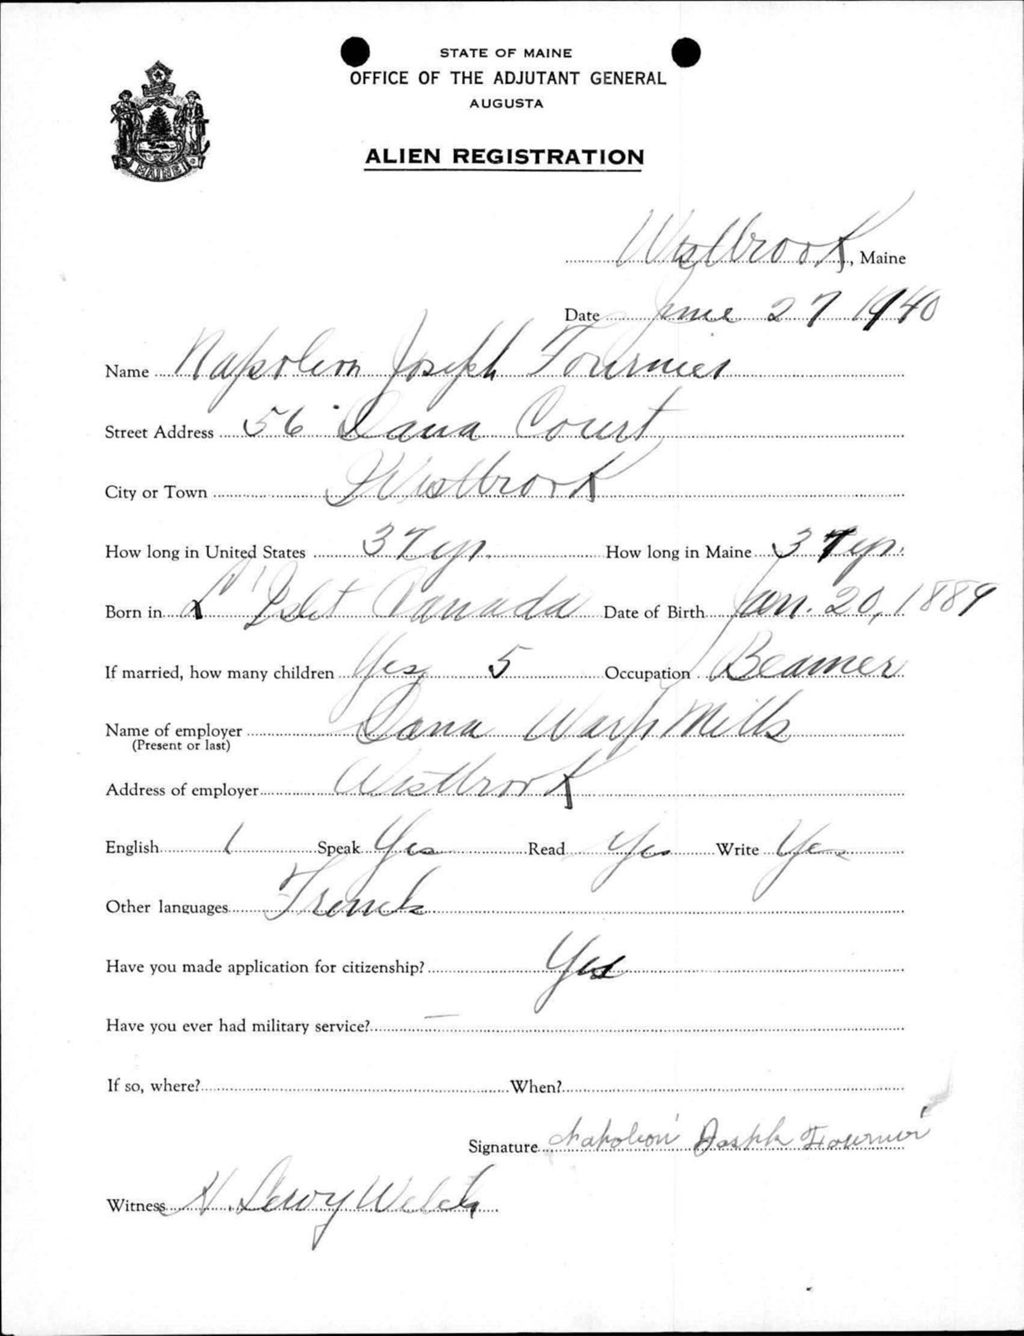 STATE OF MAINE
OFFICE OF THE ADJUTANT GENERAL
AUGUSTA
ALIEN REGISTRATION
MAINE
Westbrook, Maine
Date June 27 1940
Name Napoleon Joseph Fournier
Street Address 56 Dana Court
City or Town Westbrook
How long in United States 37 yr. How long in Maine 37 yr.
Born in L'Islet Canada Date of Birth Jan. 20, 1889
If married, how many children Yes 5 Occupation Beamer
Name of employer Dana Warp Mills
(Present or last)
Address of employer Westbrook
English Speak Yes Read Yes Write Yes
Other languages French
Have you made application for citizenship? Yes
Have you ever had military service? —
If so, where? When?
Signature Napoleon Joseph Fournier
Witness H. Leroy Welch